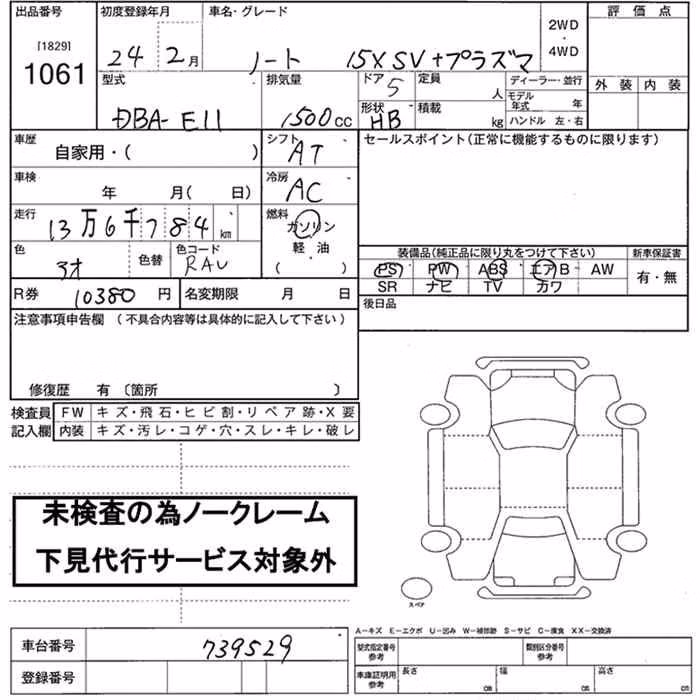 出品番号
[1829]
1061
初度登録年月
24 2月
車名・グレード
ノート 15X SV+プラズマ
2WD
・
4WD
評価点
外装 内装
型式
DBA-E11
排気量
1500cc
ドア 5
形状
HB
定員
人
積載
kg
ディーラー・並行
モデル年式 年
ハンドル 左・右
車歴
自家用・( )
シフト
AT
セールスポイント(正常に機能するものに限ります)
車検
年 月( 日)
冷房
AC
走行
13万6千784km
燃料
ガソリン
軽・油
( )
色
色替
色コード
RAU
装備品(純正品に限り丸をつけて下さい)
新車保証書
PS PW ABS エアB AW
SR ナビ TV カワ
有・無
R券 10380円
名変期限 月 日
後日品
注意事項申告欄 (不具合内容等は具体的に記入して下さい)
修復歴 有 〔箇所 〕
検査員
記入欄
FW キズ・飛石・ヒビ割・リペア跡・X要
内装 キズ・汚レ・コゲ・穴・スレ・キレ・破レ
未検査の為ノークレーム
下見代行サービス対象外
スペア
A-キズ E-エクボ U-凹み W-補修跡 S-サビ C-腐食 XX-交換済
車台番号 739529
登録番号
型式指定番号
参考
類別区分番号
参考
車庫証明用
参考
長さ cm
幅 cm
高さ cm